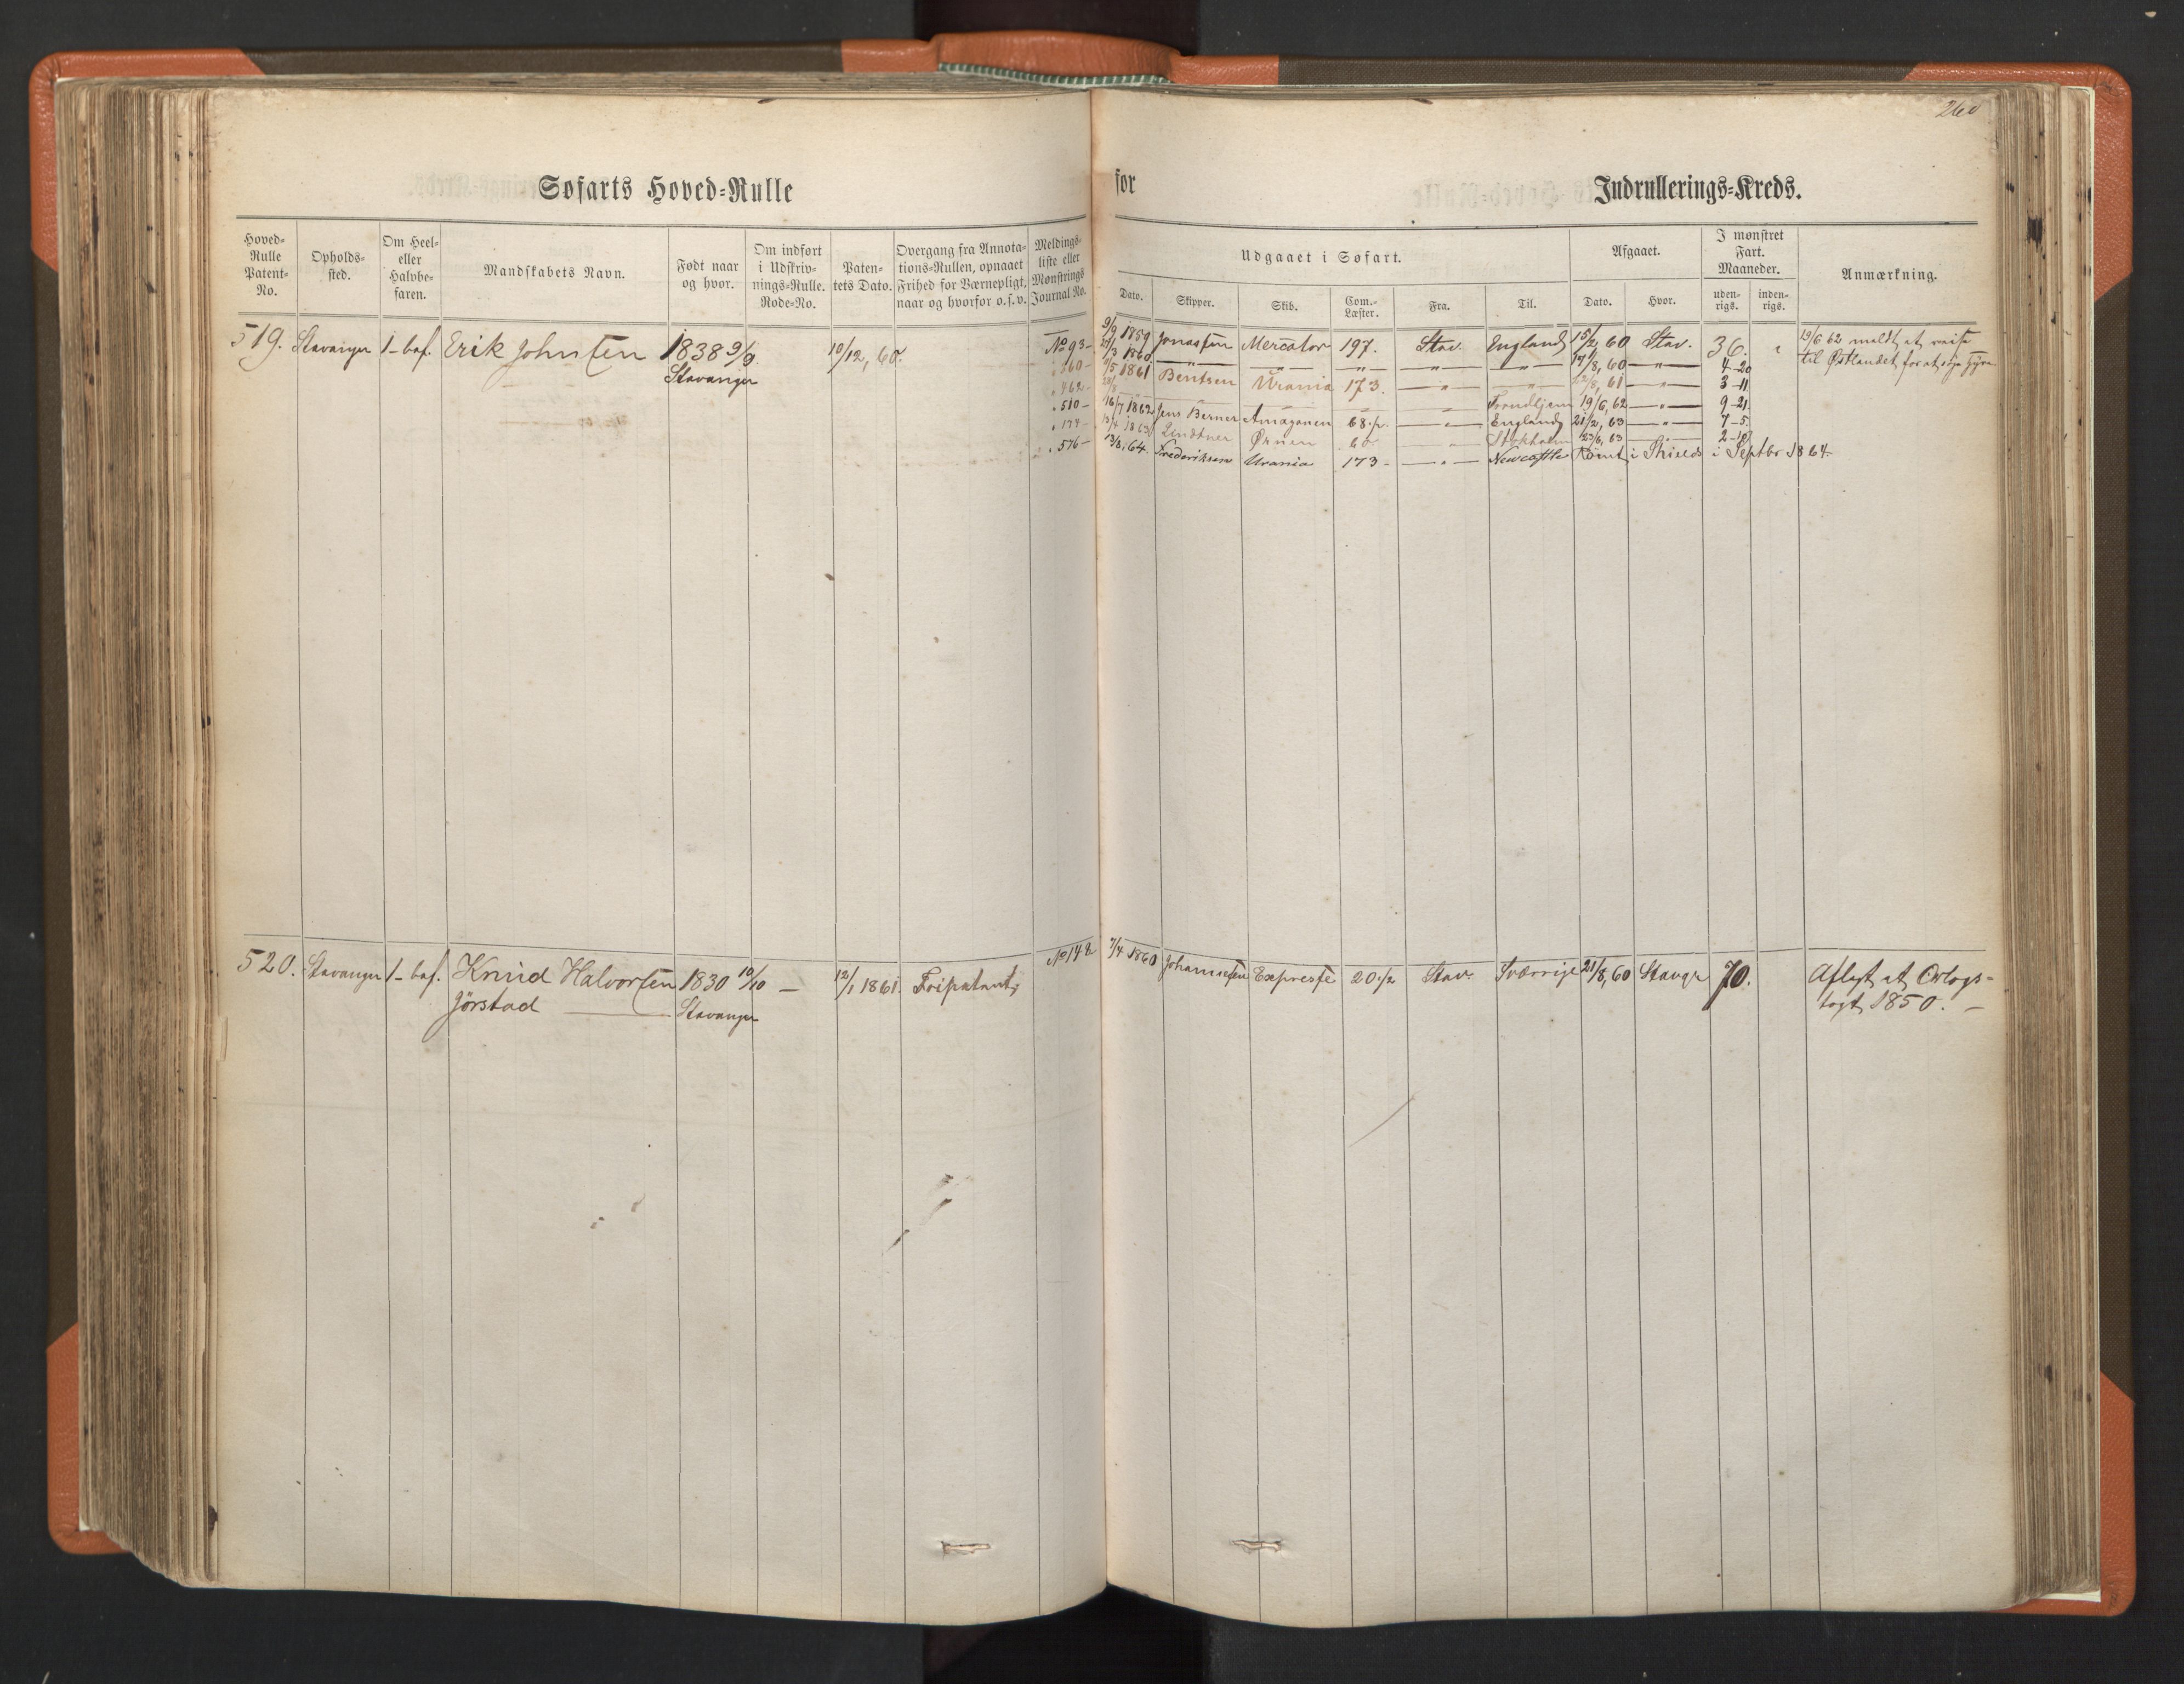 260
Søfarts Hoved-Rulle
for
Indrullerings-Kreds.
Hoved-Rulle Patent-No.
Opholds-sted.
Om Heel- eller Halvbe-faren.
Mandskabets Navn.
Født naar og hvor.
Om indført i Udskriv-nings-Rulle. Rode-No.
Paten-tets Dato.
Overgang fra Annota-tions-Rullen, opnaaet Frihed for Værnepligt, naar og hvorfor o. s. v.
Meldings-liste eller Mønstrings Journal No.
Udgaaet i Søfart.
Afgaaet.
I mønstret Fart. Maaneder.
Anmærkning.
Dato.
Skipper.
Skib.
Com.-Læster.
Fra.
Til.
Dato.
Hvor.
uden-rigs.
inden-rigs.
519. Stavanger 1-baf. Erik Johnsen 1838 9/9 10/12, 60. No 93 9/9 1859 Jonassen Mercator 197. Stav. England 15/2, 60 Stav. 36. 19/6 62 meldt at reise
Stavanger 360 1860 — „ — — „ — — „ — — „ — — „ — 17/8, 60 — „ — 4-20 til Østlandet for at søge Hyre
462 1861 Bentsen Urania 173. — „ — — „ — 22/8, 61 — „ — 3-11
Trondhjem 19/6, 62 — „ — 9-21
510 16/7 1862 Jens Berner Amazonen 68 England 21/2, 63 — „ — 7-5
1863 Lindtner Ørnen Stokholm 23/6, 63
576 13/8, 64. Frederiksen Urania 173 — „ — Newcastle Rømt i Shields i Septbr 1864.
520. Stavanger 1-baf. Knud Halvorsen 1830 10/10 — 12/1 1861. Fripatent No 148 7/4 1860 Johannesen Expresse 20 1/2 Stav. Sverrige 21/8, 60 Stavgr 70. Aflagt et Orlogs-
Jörstad Stavanger togt 1850. —